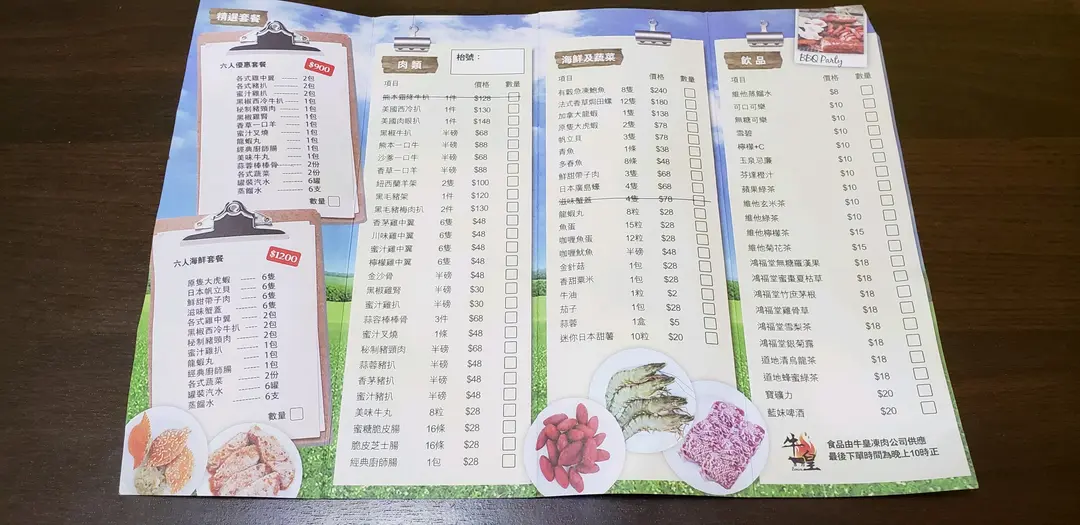 精選套餐
六人優惠套餐 $900
各式雞中翼 2包
各式豬扒 2包
蜜汁雞扒 2包
黑椒西冷牛扒 1包
秘制豬頸肉 1包
黑椒雞腎 1包
香草一口羊 1包
蜜汁叉燒 1包
龍蝦丸 1包
經典廚師腸 1包
美味牛丸 1包
蒜蓉棒棒骨 2份
各式蔬菜 2份
罐裝汽水 6罐
蒸餾水 6支
數量
六人海鮮套餐 $1200
原隻大虎蝦 6隻
日本帆立貝 6隻
鮮甜帶子肉 6隻
滋味蟹蓋 6隻
各式雞中翼 2包
黑椒西冷牛扒 2包
秘制豬頸肉 1包
蜜汁雞扒 1包
龍蝦丸 1包
經典廚師腸 1包
各式蔬菜 2份
罐裝汽水 6罐
蒸餾水 6支
數量
肉類 枱號：
項目 價格 數量
熊本雞絲牛扒 1件 $128
美國西冷扒 1件 $130
美國肉眼扒 1件 $148
黑椒牛扒 半磅 $68
熊本一口牛 半磅 $88
沙爹一口牛 半磅 $68
香草一口羊 半磅 $88
紐西蘭羊架 2隻 $100
黑毛豬架 1件 $120
黑毛豬梅肉扒 2件 $130
香茅雞中翼 6隻 $48
川味雞中翼 6隻 $48
蜜汁雞中翼 6隻 $48
檸檬雞中翼 6隻 $48
金沙骨 半磅 $48
黑椒雞腎 半磅 $30
蜜汁雞扒 半磅 $30
蒜容棒棒骨 3件 $68
蜜汁叉燒 1條 $48
秘制豬頸肉 半磅 $68
蒜蓉豬扒 半磅 $48
香茅豬扒 半磅 $48
蜜汁豬扒 半磅 $48
美味牛丸 8粒 $28
蜜糖脆皮腸 16條 $28
脆皮芝士腸 16條 $28
經典廚師腸 1包 $28
海鮮及蔬菜
項目 價格 數量
有穀魚凍鮑魚 8隻 $240
法式香草焗田螺 12隻 $180
加拿大龍蝦 1隻 $138
原隻大虎蝦 2隻 $78
帆立貝 3隻 $78
青魚 1條 $38
多春魚 8條 $48
鮮甜帶子肉 3隻 $68
日本廣島蠔 4隻 $68
滋味蟹蓋 4隻 $78
龍蝦丸 8粒 $28
魚蛋 15粒 $28
咖喱魚蛋 12粒 $28
咖喱魷魚 半磅 $48
金針菇 1包 $28
香甜粟米 1包 $28
牛油 1粒 $2
茄子 1包 $28
蒜蓉 1盒 $5
迷你日本甜薯 10粒 $20
飲品
BBQ Party
項目 價格 數量
維他蒸餾水 $8
可口可樂 $10
無糖可樂 $10
雪碧 $10
檸檬+C $10
玉泉忌廉 $10
芬達橙汁 $10
蘋果綠茶 $10
維他玄米茶 $10
維他綠茶 $10
維他檸檬茶 $15
維他菊花茶 $15
鴻福堂無糖羅漢果 $18
鴻福堂蜜棗夏枯草 $18
鴻福堂竹庶茅根 $18
鴻福堂雞骨草 $18
鴻福堂雪梨茶 $18
鴻福堂銀菊露 $18
道地清烏龍茶 $18
道地蜂蜜綠茶 $18
寶礦力 $20
藍妹啤酒 $20
牛皇
食品由牛皇凍肉公司供應
最後下單時間為晚上10時正